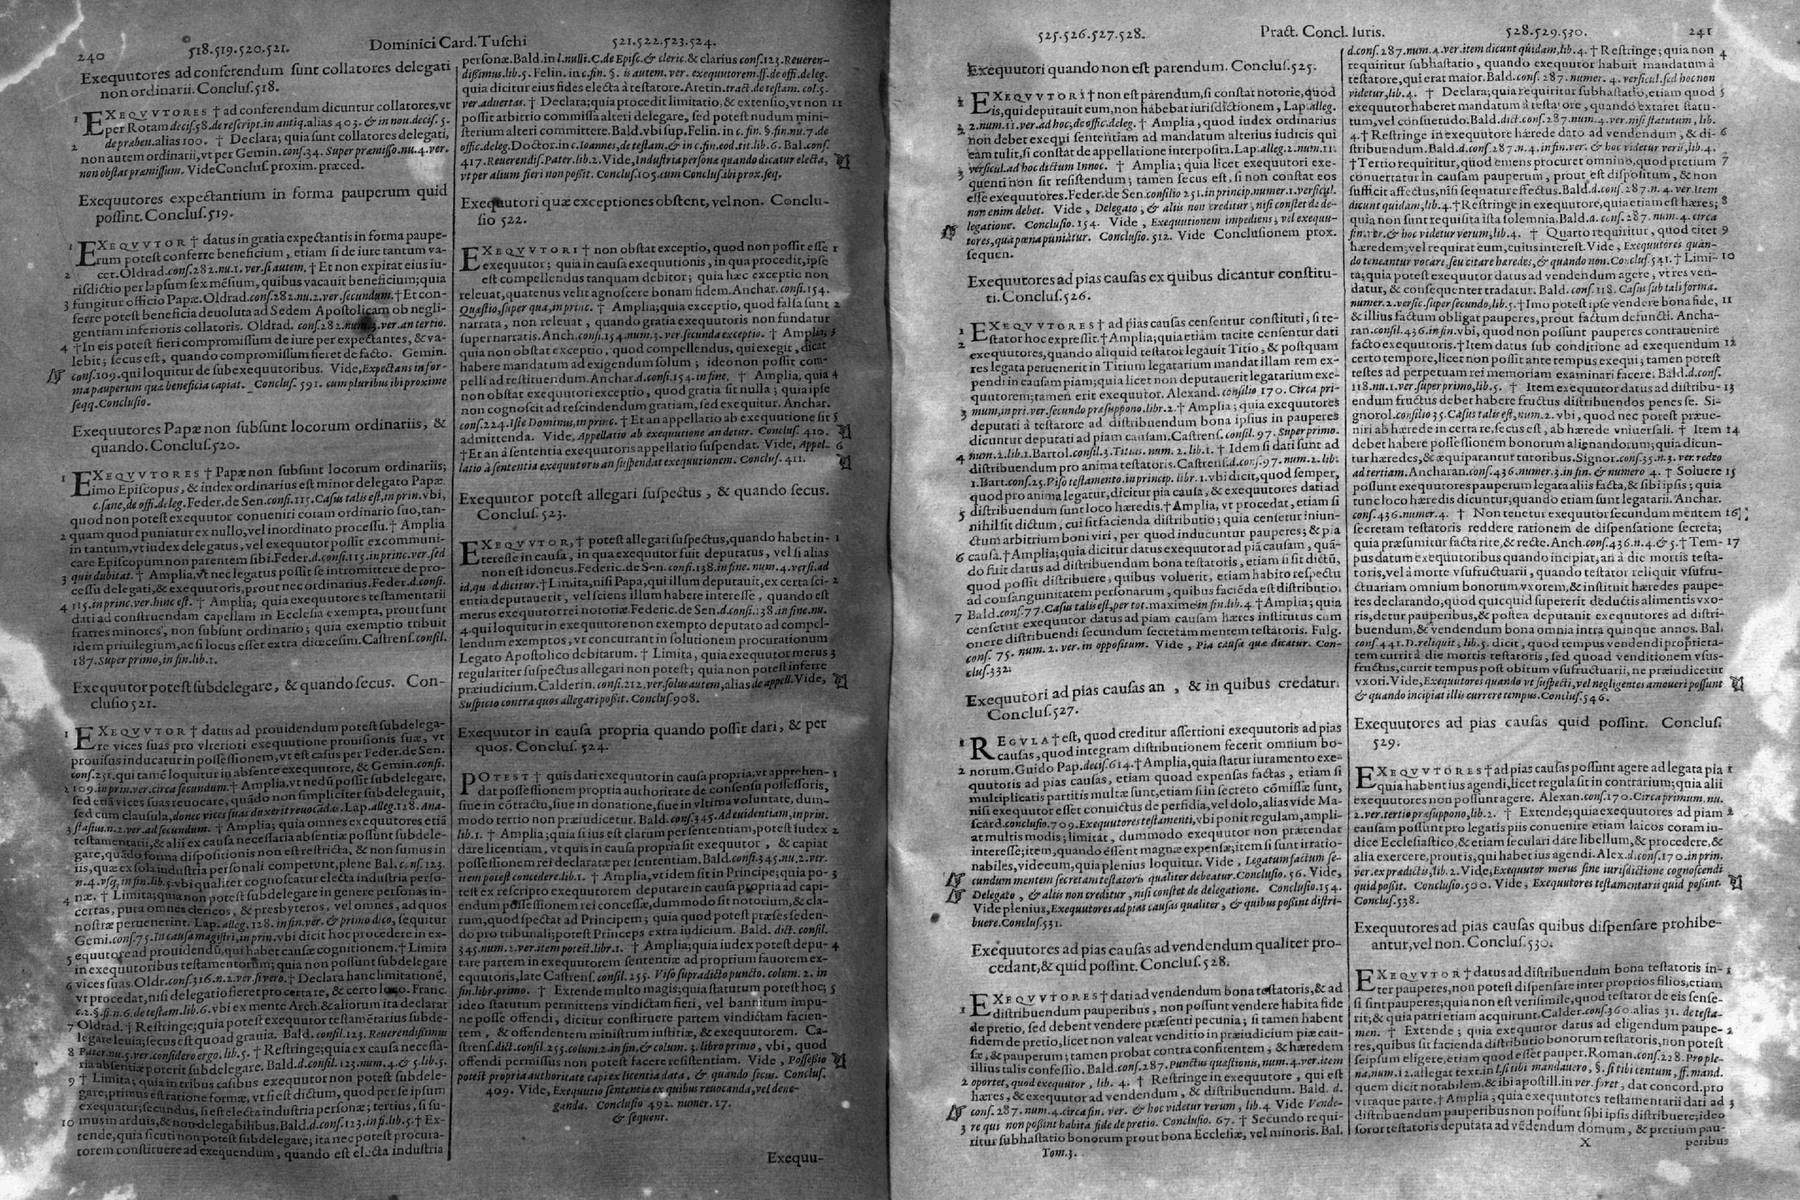 240
518.519.520.521.
Dominici Card. Tuschi
521.522.523.524.
Exequutores ad conferendum sunt collatores delegati
non ordinarii. Conclus.518.
1 EXEQVVTORES † ad conferendum dicuntur collatores, vt
per Rotam decis.58.de rescript.in antiq.alias 403. & in nou.deci. 5.
2 de præben.alias 100. † Declara; quia sunt collatores delegati,
non autem ordinarii, vt per Gemin. cons.34. Super præmisso.nu.4.ver.
non obstat præmissum. Vide Conclus. proxim. præced.
Exequutores expectantium in forma pauperum quid
possint. Conclus.519.
1 EXEQVVTOR † datus in gratia expectantis in forma paupe-
rum potest conferre beneficium, etiam si de iure tantum va-
2 cet. Oldrad.cons.282.nu.1.ver.si autem. † Et non expirat eius iu-
risdictio per lapsum sex mēsium, quibus vacauit beneficium; quia
3 fungitur officio Papæ. Oldrad.cons.282.nu.2.ver.secundum. † Et con-
ferre potest beneficia deuoluta ad Sedem Apostolicam ob negli-
gentiam inferioris collatoris. Oldrad. cons.282.num.3.ver.an tertio.
4 † In eis potest fieri compromissum de iure per expectantes, & va-
lebit; secus est, quando compromissum fieret de facto. Gemin.
cons.109.qui loquitur de subexequutoribus. Vide, Expectans in for-
ma pauperum quæ beneficia capiat. Conclus. 591. cum pluribus ibi proxime
seqq. Conclusio.
Exequutores Papæ non subsunt locorum ordinariis, &
quando. Conclus.520.
1 EXEQVVTORES † Papæ non subsunt locorum ordinariis;
imo Episcopus, & iudex ordinarius est minor delegato Papæ
c.sane, de offi.deleg. Feder. de Sen.cons.115.Casus talis est, in prin.vbi,
quod non potest exequutor conueniri coram ordinario suo, tan-
2 quam quod puniatur ex nullo, vel inordinato processu. † Amplia
in tantum, vt iudex delegatus, vel exequutor possit excommuni-
care Episcopum non parentem sibi. Feder.d.cons.115.in princ.ver.sed
3 quis dubitat. † Amplia, vt nec legatus possit se intromittere de pro-
cessu delegati, & exequutoris, prout nec ordinarius. Feder.d.cons.
4 115.in princ.ver.hinc est. † Amplia; quia exequutores testamentarii
dati ad construendam capellam in Ecclesia exempta, prout sunt
fratres minores, non subsunt ordinario; quia exemptio tribuit
idem priuilegium, ac si locus esset extra diœcesim. Castrens.consil.
187.Super primo, in fin.lib.1.
Exequutor potest subdelegare, & quando secus. Con-
clusio 521.
1 EXEQVVTOR † datus ad prouidendum potest subdelega-
re vices suas pro vlteriori exequutione prouisionis suæ, vt
prouisus inducatur in possessionem, vt est casus per Feder.de Sen.
cons.251.qui tamē loquitur in absente exequutore, & Gemin.consi.
2 109.in prin.ver.circa secundum. † Amplia, vt ned ū possit subdelegare,
sed etiā vices suas reuocare, quādo non simpliciter subdelegauit,
sed cum clausula, donec vices suas duxerit reuocādas. Lap.alleg.128. Ana-
3 stasius.n.2.ver.ad secundum. † Amplia; quia omnes exequutores etiā
testamentarii, & alii ex causa necessaria absentiæ possunt subdele-
gare, quādo forma dispositionis non est restricta, & non sumus in
iis, quæ ex sola industria personali competunt, plene Bal. cons.123.
n.4.vsq. in fin.lib.5.vbi qualiter cognoscatur electa industria perso-
4 næ. † Limita; quia non potest subdelegare in genere personas in-
certas, puta omnes clericos, & presbyteros, vel omnes, ad quos
nostræ peruenerint. Lap. alleg. 128. in fin.ver. & primo dico, sequitur
Gemi.cons.75.In causa magistri, in prin.vbi dicit hoc procedere in ex-
5 equutore ad prouidendū, qui habet causæ cognitionem. † Limita
in exequutoribus testamentorum; quia non possunt subdelegare
6 vices suas. Oldr.cons.316.n.2.ver.si vero. † Declara hanc limitationē,
vt procedat, nisi delegatio fieret pro certare, & certo loco. Franc.
c.2.§.fi.n.6.de testam.lib.6. vbi ex mente Arch.& aliorum ita declarat
7 Oldrad. † Restringe; quia potest exequutor testamētarius subde-
legare leuia; secus est quoad grauia. Bald. consil.123. Reuerendissimus
8 Pater.nu.5.ver.considero ergo. lib.5. † Restringe; quia ex causa necessa-
ria absentiæ poterit subdelegare. Bald.d.consil.123.num.4.& 5.lib.5.
9 † Limita; quia in tribus casibus exequutor non potest subdele-
gare; primus est ratione formæ, vt si est dictum, quod per se ipsum
exequatur; secundus, si est electa industria personæ; tertius, si su-
10 mus in arduis, & non delegabilibus. Bald.d.cons.123.in fi.lib.5. † Ex-
tende, quia sicuti non potest subdelegare; ita nec potest procura-
torem constituere ad exequendum, quando est electa industria
personæ. Bald. in l.nulli. C. de Episc. & cleric. & clarius cons.123.Reueren-
dissimus.lib.5. Felin. in c.fin. §. is autem. ver. exequutorem.ff.de offi.deleg.
quia dicitur eius fides electa à testatore. Aretin.tract.de testam. col.5.
ver.aduertas. † Declara; quia procedit limitatio, & extensio, vt non 11
possit arbitrio commissa alteri delegare, sed potest nudum mini-
sterium alteri committere. Bald. vbi sup. Felin. in c. fin. §.fin.nu.7.de
offic.deleg. Doctor.in c. Ioannes, de testam. & in c.fin.eod.tit.lib.6. Bal.cons.
417. Reuerendis.Pater.lib.2. Vide, Industria personæ quando dicatur electa,
vt per alium fieri non possit. Conclus.105.cum Conclus.ibi prox.seq.
Exequutori quæ exceptiones obstent, vel non. Conclu-
sio 522.
EXEQVVTORI † non obstat exceptio, quod non possit esse 1
exequutor; quia in causa exequutionis, in qua procedit, ipse
est compellendus tanquam debitor; quia hæc exceptio non
releuat, quatenus velit agnoscere bonam fidem. Anchar. cons.154.
Quæstio, super qua, in princ. † Amplia; quia exceptio, quod falsa sunt 2
narrata, non releuat, quando gratia exequutoris non fundatur
super narratis. Anch.cons.154.num.3.ver.secunda exceptio. † Amplia; 3
quia non obstat exceptio, quod compellendus, qui exegit, dicat
habere mandatum ad exigendum solum; ideo non possit com-
pelli ad restituendum. Anchar.d.cons.154.in fine. † Amplia, quia 4
non obstat exequutori exceptio, quod gratia sit nulla; quia ipse
non cognoscit ad rescindendum gratiam, sed exequitur. Anchar.
cons.224.Iste Dominus, in princ. † Et an appellatio ab exequutione sit 5
admittenda. Vide, Appellatio ab exequutione an detur. Conclus. 410.
† Et an à sententia exequutoris appellatio suspendat. Vide, Appel- 6
latio à sententia exequutoris an suspendat exequutionem. Conclus. 411.
Exequutor potest allegari suspectus, & quando secus.
Conclus.523.
EXEQVVTOR, † potest allegari suspectus, quando habet in- 1
teresse in causa, in qua exequutor fuit deputatus, vel si alias
non est idoneus. Frederic.de Sen.consil.138.in fine. num.4.versi.ad
id, quod dicitur. † Limita, nisi Papa, qui illum deputauit, ex certa sci- 2
entia deputauerit, vel sciens illum habere interesse, quando est
merus exequutor rei notoriæ Federic.de Sen.d.consi.138.in fine.nu.
4.qui loquitur in exequutore non exempto deputato ad compel-
lendum exemptos, vt concurrant in solutionem procurationum
Legato Apostolico debitarum. † Limita, quia exequutor merus 3
regulariter suspectus allegari non potest; quia non potest inferre
præiudicium. Calderin.cons.212.ver.solus autem, alias de appell. Vide,
Suspicio contra quos allegari possit. Conclus.908.
Exequutor in causa propria quando possit dari, & per
quos. Conclus. 524.
POTEST † quis dari exequutor in causa propria, vt apprehen- 1
dat possessionem propria authoritate de consensu possessoris,
siue in cōtractu, siue in donatione, siue in vltima voluntate, dum-
modo tertio non præiudicetur. Bald. cons.345.Ad euidentiam, in prin.
lib.1. † Amplia; quia si ius est clarum per sententiam, potest iudex 2
dare licentiam, vt quis in causa propria sit exequutor, & capiat
possessionem rei declaratæ per sententiam. Bald.consi.345.nu.2.ver.
item potest concedere.lib.1. † Amplia, vt idem sit in Principe; quia po- 3
test ex rescripto exequutorem deputare in causa propria ad capi-
endum possessionem rei concessæ, dummodo sit notorium, & cla-
rum, quod spectat ad Principem; quia quod potest præses seden-
do pro tribunali; potest Princeps extra iudicium. Bald. dict. consil.
345.num.2.ver.item potest.lib.1. † Amplia; quia iudex potest depu- 4
tare partem in exequutorem sententiæ ad proprium fauorem ex-
equutoris, late Castrens.consil.255. Viso supradicto puncto. colum.2. in
fin.libr.primo. † Extende multo magis; quia statutum potest hoc; 5
ideo statutum permittens vindictam fieri, vel bannitum impu-
ne posse offendi, dicitur constituere partem vindictam facien-
tem, & offendentem ministrum iustitiæ, & exequutorem. Ca-
strens.dict.consil.255.colum.2.in fin.& colum.3.libro primo, vbi, quod
offendi permissus non potest facere resistentiam. Vide, Possessio
potest propria authoritate capi ex licentia data, & quando secus. Conclus.
409. Vide, Exequutio sententiæ ex quibus reuocanda, vel dene-
ganda. Conclusio 492. numer.17.
& sequent.
Exequu-
525.526.527.528.
Pract. Concl. Iuris.
528.529.530.
241
Exequutori quando non est parendum. Conclus.525.
1 EXEQVVTORI † non est parendum, si constat notorie, quod
is, qui deputauit eum, non habebat iurisdictionem, Lap.alleg.
2 2.num.11.ver.ad hoc, de offic.deleg. † Amplia, quod iudex ordinarius
non debet exequi sententiam ad mandatum alterius iudicis qui
eam tulit, si constat de appellatione interposita. Lap.alleg.2.num.11.
3 versicul.ad hoc dictum Innoc. † Amplia; quia licet exequutori exe-
quenti non sit resistendum; tamen secus est, si non constat eos
esse exequutores. Feder.de Sen.consilio 251.in princip.numer.1.versicul.
non enim debet. Vide, Delegato, & aliis non creditur, nisi constet de de-
legatione. Conclusio.154. Vide, Exequutionem impediens, vel exequu-
tores, qua pœna puniātur. Conclusio. 512. Vide Conclusionem prox.
sequen.
Exequutores ad pias causas ex quibus dicantur constitu-
ti. Conclus.526.
1 EXEQVVTORES † ad pias causas censentur constituti, si te-
2 stator hoc expressit. † Amplia; quia etiam tacite censentur dati
exequutores, quando aliquid testator legauit Titio, & postquam
res legata peruenerit in Titium legatarium mandat illam rem ex-
pendi in causam piam; quia licet non deputauerit legatarium exe-
quutorem; tamen erit exequutor. Alexand. consilio 170. Circa pri-
3 mum, in pri.ver.secundo præsuppono.libr.2. † Amplia; quia exequutores
deputati à testatore ad distribuendum bona ipsius in pauperes
dicuntur deputati ad piam causam. Castrens. consil. 97. Super primo.
4 num.2.lib.1.Bartol.consil.3.Titius.num.2.lib.1. † Idem si dati sunt ad
distribuendum pro anima testatoris. Castrens.d.cons.97.num.2.lib.
1.Bart.cons.25.Piso testamento.in princip. libr. 1.vbi dicit, quod semper,
quod pro anima legatur, dicitur pia causa, & exequutores dati ad
5 distribuendum sunt loco hæredis. † Amplia, vt procedat, etiam si
nihil sit dictum, cui sit facienda distributio; quia censetur iniun-
ctum arbitrium boni viri, per quod inducuntur pauperes; & pia
6 causa. † Amplia; quia dicitur datus exequutor ad piā causam, quā-
do fuit datus ad distribuendum bona testatoris, etiam si sit dictū,
quod possit distribuere, quibus voluerit, etiam habito respectu
ad consanguinitatem personarum, quibus faciēda est distributio.
7 Bald.cons.77.Casus talis est, per tot.maxime in fin.lib.4. † Amplia; quia
censetur exequutor datus ad piam causam hæres institutus cum
onere distribuendi secundum secretam mentem testatoris. Fulg.
cons. 75. num. 2. ver. in oppositum. Vide, Pia causa quæ dicatur. Con-
clus.332.
Exequutori ad pias causas an, & in quibus credatur.
Conclus.527.
1 REGVLA † est, quod creditur assertioni exequutoris ad pias
causas, quod integram distributionem fecerit omnium bo-
2 norum. Guido Pap.decis.614. † Amplia, quia statur iuramento exe-
quutoris ad pias causas, etiam quoad expensas factas, etiam si
multiplicatis partitis multæ sunt, etiam si in secreto cōmissæ sunt,
nisi exequutor esset conuictus de perfidia, vel dolo, alias vide Ma-
scard.conclusio.709.Exequutores testamenti, vbi ponit regulam, ampli-
at multis modis; limitat, dummodo exequutor non prætendat
interesse; item, quando essent magnæ expensæ; item si sunt irratio-
nabiles, vide eum, quia plenius loquitur. Vide, Legatum factum se-
cundum mentem secretam testatoris qualiter debeatur. Conclusio. 56. Vide,
Delegato, & aliis non creditur, nisi constet de delegatione. Conclusio.154.
Vide plenius, Exequutores ad pias causas qualiter, & quibus possint distri-
buere. Conclus.531.
Exequutores ad pias causas ad vendendum qualiter pro-
cedant, & quid possint. Conclus.528.
1 EXEQVVTORES † dati ad vendendum bona testatoris, & ad
distribuendum pauperibus, non possunt vendere habita fide
de pretio, sed debent vendere præsenti pecunia; si tamen habent
fidem de pretio, licet non valeat venditio in præiudicium piæ cau-
sæ, & pauperum; tamen probat contra confitentem, & hæredem
illius talis confessio. Bald.cons.287. Punctus quæstionis, num.4.ver.item
2 oportet, quod exequutor, lib. 4. † Restringe in exequutore, qui est
hæres, & exequutor ad vendendum, & distribuendum. Bald. d.
cons.287.num.4.circa fin. ver. & hoc videtur verum, lib.4 Vide Vende-
re qui non possint habita fide de pretio. Conclusio. 67. † Secundo requi-
3 ritur subhastatio bonorum prout bona Ecclesiæ, vel minoris. Bal.
Tom.3.
d.cons.287.num.4.ver.item dicunt quidam, lib.4. † Restringe; quia non 4
requiritur subhastatio, quando exequutor habuit mandatum à
testatore, qui erat maior. Bald.cons. 287. numer. 4. versicul.sed hoc non
videtur, lib.4. † Declara; quia requiritur subhastatio, etiam quod 5
exequutor haberet mandatum à testatore, quando extaret statu-
tum, vel consuetudo. Bald. dict.cons.287.num.4.ver.nisi statutum, lib.
4. † Restringe in exequutore hærede dato ad vendendum, & di- 6
stribuendum. Bald.cons.287.n.4.in fin.ver. & hoc videtur verū, lib.4.
† Tertio requiritur, quod emens procuret omnino, quod pretium 7
conuertatur in causam pauperum, prout est dispositum, & non
sufficit affectus, nisi sequatur effectus. Bald.d.cons.287.n.4. ver.item
dicunt quidam, lib.4. † Restringe in exequutore, qui etiam est hæres; 8
quia non sunt requisita ista solemnia. Bald.d. cons.287. num.4. circa
fin.ver.& hoc videtur verum, lib.4. † Quarto requiritur, quod citet 9
hæredem; vel requirat eum, cuius interest. Vide, Exequutores quan-
do teneantur vocare, seu citare hæredes, & quando non. Conclus.541. † Limi- 10
ta; quia potest exequutor datus ad vendendum agere, vt res ven-
datur, & consequenter tradatur. Bald.cons. 118. Casus sub tali forma.
numer.2.versic.super secundo, lib.5. † Imo potest ipse vendere bona fide, 11
& illius factum obligat pauperes, prout factum defuncti. Ancha-
ran.cons.436.in fin.vbi, quod non possunt pauperes contrauenire
facto exequutoris. † Item datus sub conditione ad exequendum 12
certo tempore, licet non possit ante tempus exequi; tamen potest
testes ad perpetuam rei memoriam examinari facere. Bald.d.cons.
118.nu.1.ver.super primo, lib.5. † Item exequutor datus ad distribu- 13
endum fructus debet habere fructus distribuendos penes se. Si-
gnorol.consilio 35.Casus talis est, num.2. vbi, quod nec potest præue-
niri ab hærede in certa re, secus est, ab hærede vniuersali. † Item 14
debet habere possessionem bonorum alignandorum; quia dicun-
tur hæredes, & æquiparantur tutoribus. Signor.cons.35.n.3. ver. redeo
ad tertiam. Ancharan.cons.436.numer.3.in fin. & numero 4. † Soluere 15
possunt exequutores pauperum legata aliis facta, & sibi ipsis; quia
tunc loco hæredis dicuntur; quando etiam sunt legatarii. Anchar.
cons.436.numer.4. † Non tenetur exequutor secundum mentem 16
secretam testatoris reddere rationem de dispensatione secreta;
quia præsumitur facta rite, & recte. Anch.cons.436.n.4.& 5. † Tem- 17
pus datum exequutoribus quando incipiat, an à die mortis testa-
toris, vel à morte vsufructuarii, quando testator reliquit vsufru-
ctuariam omnium bonorum vxorem, & instituit hæredes paupe-
res declarando, quod quicquid supererit deductis alimentis vxo-
ris, detur pauperibus, & postea deputauit exequutores ad distri-
buendum, & vendendum bona omnia intra quinque annos. Bal.
cons.441.D.reliquit, lib.5. dicit, quod tempus vendendi proprieta-
tem currit à die mortis testatoris, sed quod venditionem vsus-
fructus, currit tempus post obitum vsufructuarii, ne præiudicetur
vxori. Vide, Exequutores quando vt suspecti, vel negligentes amoueri possunt
& quando incipiat illis currere tempus. Conclus.546.
Exequutores ad pias causas quid possint. Conclus.
529.
EXEQVVTORES † ad pias causas possunt agere ad legata pia 1
quia habent ius agendi, licet regula sit in contrarium; quia alii
exequutores non possunt agere. Alexan.cons.170.Circa primum, nu.
2.ver.tertio præsuppono, lib.2. † Extende; quia exequutores ad piam 2
causam possunt pro legatis piis conuenire etiam laicos coram iu-
dice Ecclesiastico, & etiam seculari dare libellum, & procedere, &
alia exercere, prout is, qui habet ius agendi. Alex.d.cons.170.in prin.
ver.ex prædictis, lib.2. Vide, Exequutor merus sine iurisdictione cognoscendi
quid possit. Conclusio.500. Vide, Exequutores testamentarii quid possint.
Conclus.538.
Exequutores ad pias causas quibus dispensare prohibe-
antur, vel non. Conclus.530.
EXEQVVTOR † datus ad distribuendum bona testatoris in- 1
ter pauperes, non potest dispensare inter proprios filios, etiam
si sint pauperes; quia non est verisimile, quod testator de eis sense-
rit; & quia patri etiam acquirunt. Calder.cons.360.alias 31. de testa-
men. † Extende; quia exequutor datus ad eligendum paupe- 2
res, quibus sit facienda distributio bonorum testatoris, non potest
seipsum eligere, etiam quod esset pauper. Roman.cons.228. Pro ple-
na, num.12.allegat text.in l.si tibi mandauero, §.si tibi tentum, ff. mand.
quem dicit notabilem. & ibi apostill.in ver.foret, dat concord.pro
vtraque parte. † Amplia; quia exequutores testamentarii dati ad 3
distribuendum pauperibus non possunt sibi ipsis distribuere; ideo
soror testatoris deputata ad vēdendum domum, & pretium pau-
X
peribus